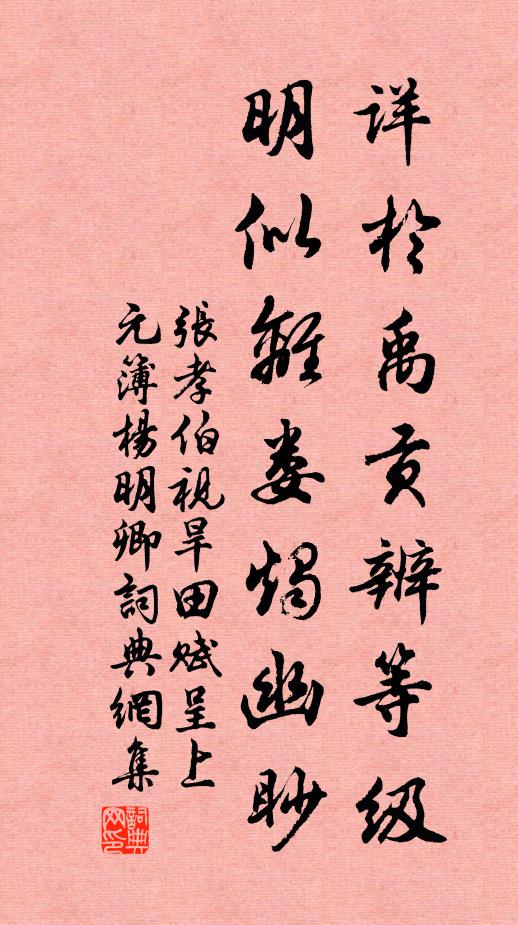 详於禹贡辨等级
明似離娄燭幽眇
張孝伯視旱田赋呈上
元簿楊明卿詞典網集
詞典
网印